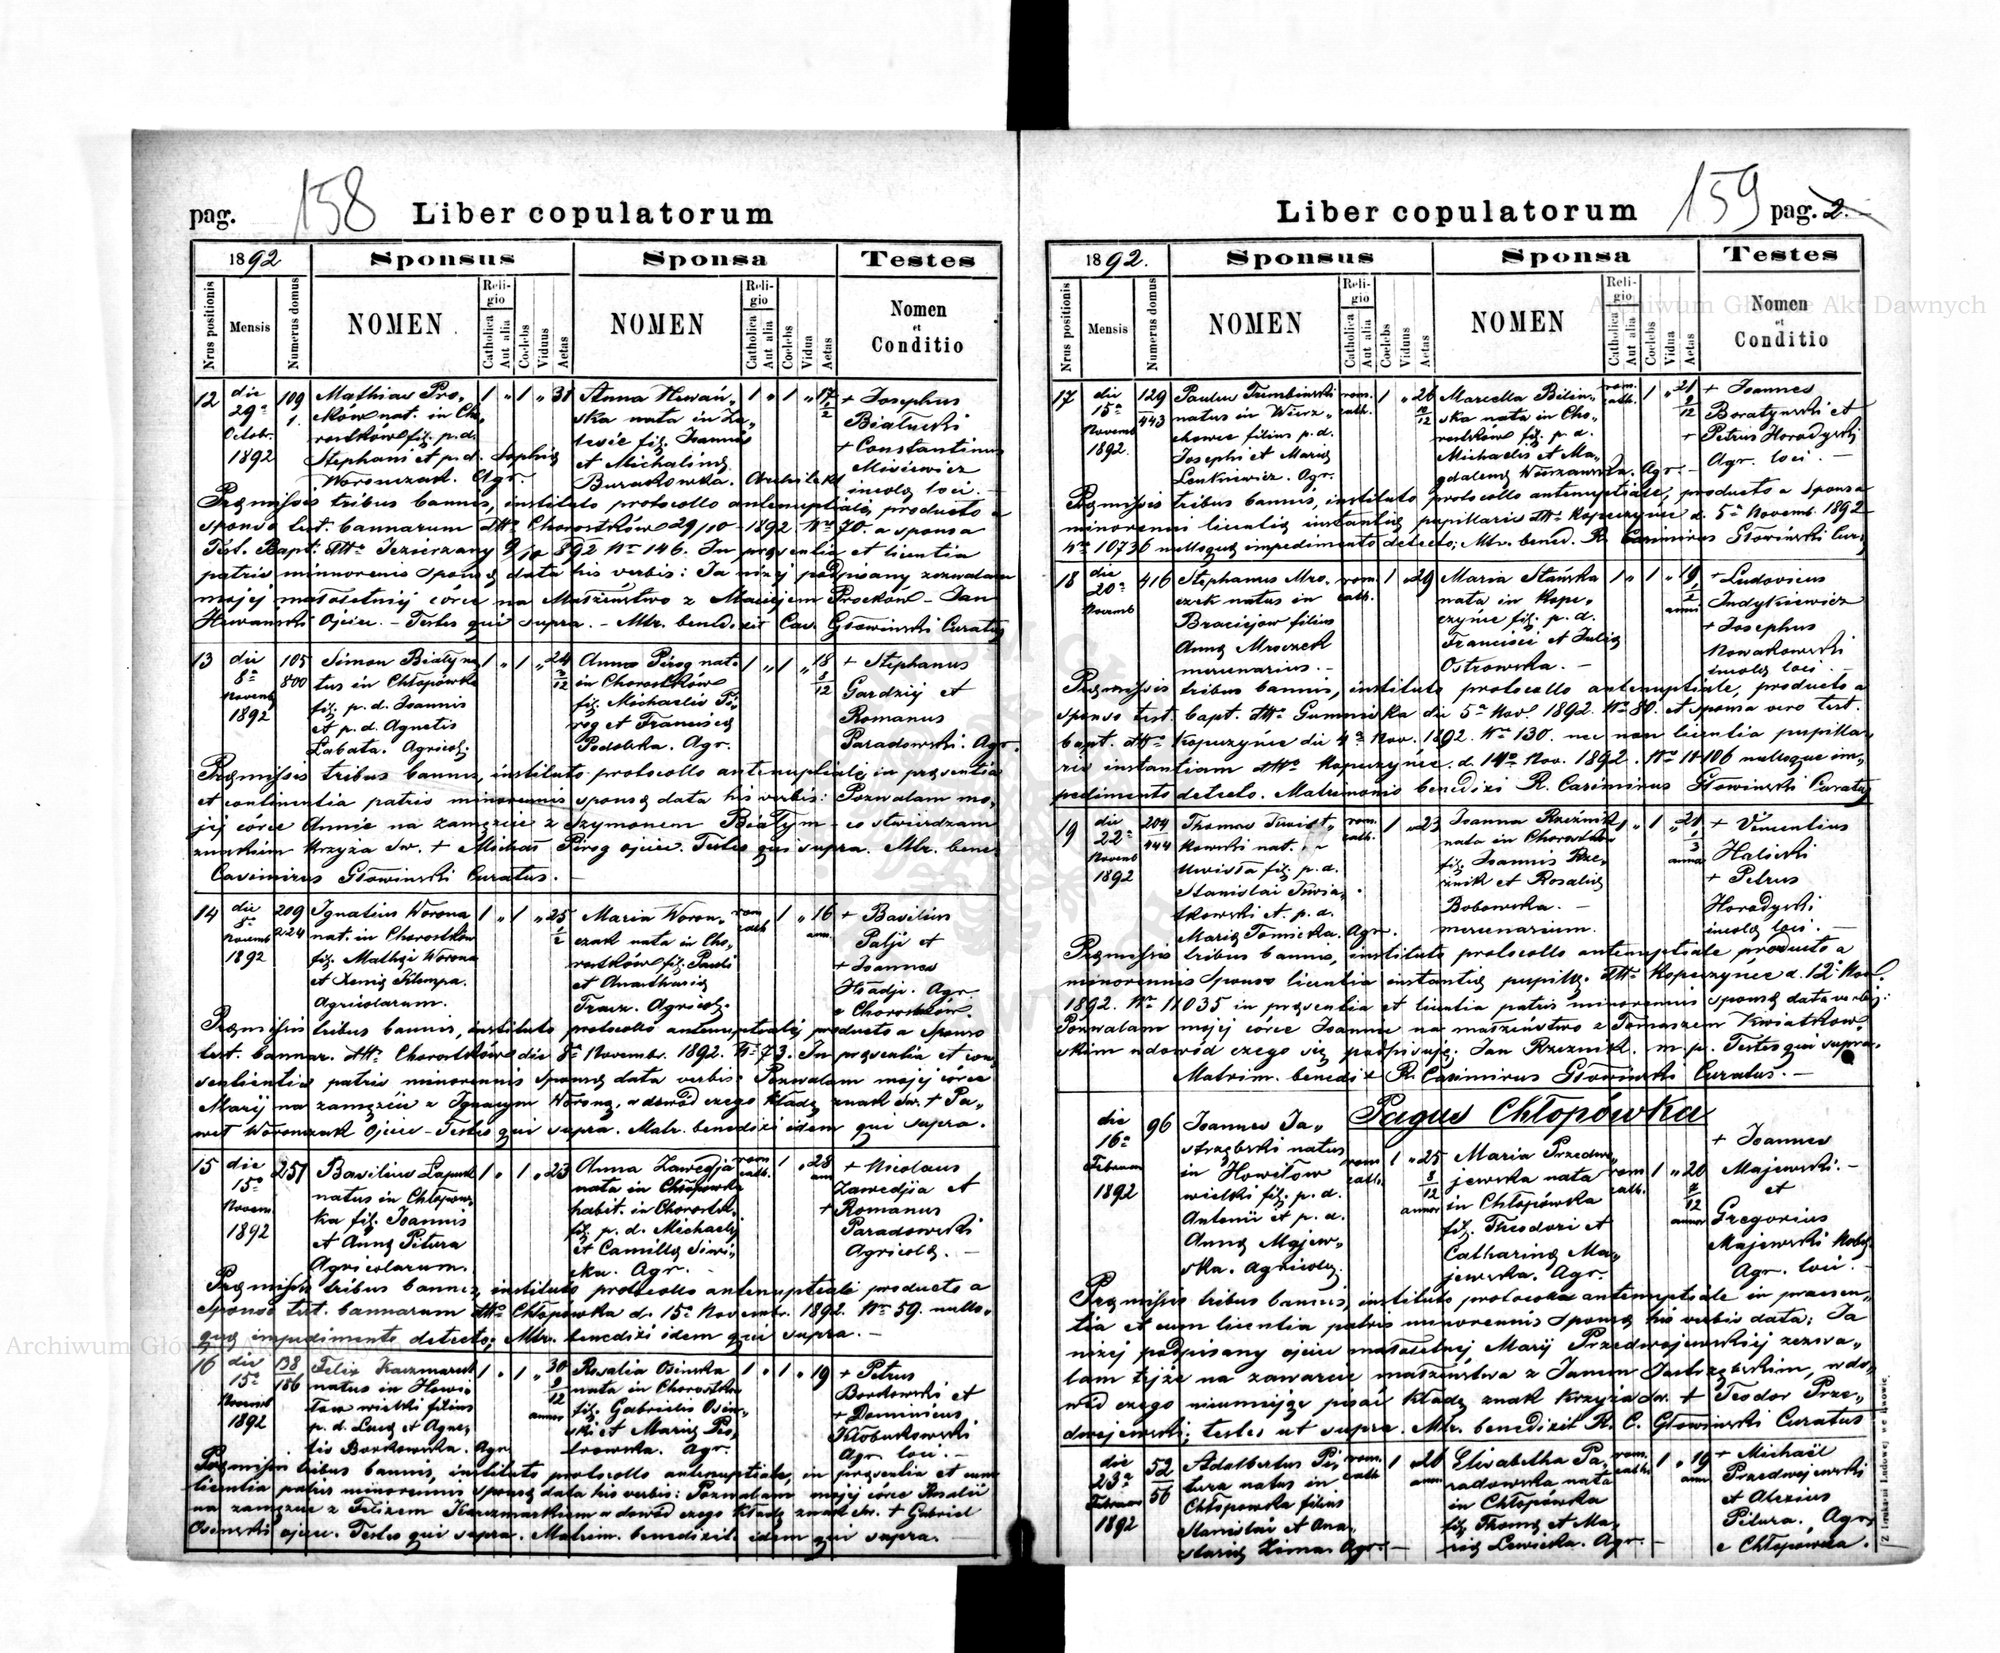 158
pag. Liber copulatorum
1892
Sponsus
Sponsa
Testes
Nrus positionis
Mensis
Numerus domus
NOMEN
Religio
Catholica
Aut alia
Coelebs
Viduus
Aetas
NOMEN
Religio
Catholica
Aut alia
Coelebs
Vidua
Aetas
Nomen
et
Conditio
12
die
29a
Octobr.
1892
109
1.
Mathias Pro„
ków nat. in Cho„
rostków fil. p. d.
Stephani et p. d. Sophię
Woronczak. Agr.
1 „ 1 „ 31
Anna Hrwań„
ska nata in
fil. Joannis
et Michalinę
Burakowska.
1 „ 1 „ 17 1/2
+ Josephus
Białuski
+ Constantinus
Misiewicz
incolę loci. –
Pręmissis tribus bannis, instituto protocollo antenuptiale, producto a
sponso test. bannarum ddto Chorostków 29/10 1892 No 70. a sponsa
Test. Bapt. ddto Jezierzany 9/10 892 No 146. In pręsentia et licentia
patris minnorenis sponsę data his verbis: Ja niżej podpisany zezwalam
mojej małoletniej córce na Małżeństwo z Maciejem Proków – Jan
Hrwański Ojciec. – Testes qui supra. – Mtr. benedixit Cas. Głowiński Curatus
13
die
8a
Novemb
1892
105
800
Simon Biały na„
tus in Chłopówka
fil. p. d. Joannis
et p. d. Agnetis
Labata. Agricol.
1 „ 1 „ 24 /12
Anna Pirog nat.
in Chorostków
fil. Michaelis Pi„
rog et Franciscę
Podolska. Agr.
1 „ 1 18 8/12
+ Stephanus
Gardzij et
Romanus
Paradowski. Agr.
Pręmissis tribus bannis, instituto protocollo antenuptiale in pręsentia
et continentia patris minorennis sponsę data his verbis: Pozwalam mo„
jej córce Annie na zamęzcie z Szymonem Białym – co stwierdzam
znakiem krzyża św. + Michał Pirog ojciec. Testes qui supra. Mtr. bene
Casimirus Głowiński Curatus. –
14
die
8a
Novemb
1892
209
224
Ignatius Worona
nat. in Chorostków
fil. Mathęi Worona
et Xenię Klompa.
Agricolarum.
1 „ 1 „ 25 1/2
Maria Woron„
czak nata in Cho„
rostków fil. Pauli
et Anastasię
Tracz. Agricol.
rom. cath 1 „ 16 ann.
+ Basilius
Palji et
+ Joannes
Hładji. Agr.
e Chorostków.
Pręmissis tribus bannis, instituto protocollo antenuptiali, producto a sponso
test. bannar. ddto Chorostków die 8a Novembr. 1892. No 73. In pręsentia et con„
sentientia patris minorennis sponsę data verbis: Pozwalam mojej córce
Maryi na zamęzcie z Ignacym Woroną, a dowód czego kładę znak św. + Pa„
weł Woronczak Ojciec – Testes qui supra. Matr. benedixi idem qui supra.
15
die
15a
Novem.
1892
257
Basilius
natus in Chłopow„
ka fil. Joannis
et Annę Pitura
Agricolarum.
1 „ 1 „ 23
Anna Zawedja
nata in Chłopowka
habit. in Chorostk.
fil. p. d. Michaelis
et Camillę Siwi„
cka. Agr.
rom. cath. 1 „ 28 ann
+ Nicolaus
Zawedjia et
+ Romanus
Paradowski
Agricolę. –
Pręmissis tribus bannis, instituto protocollo antenuptiali producto a
sponso test. bannarum ddto Chłopowka d. 15a Novembr. 1892. No 59. nullo„
que impedimento detecto; Mtr. benedixi idem qui supra. –
16
die
15a
Novemb
1892
138
186
Felix Kaczmarek
natus in Howi„
łow wielki filius
p. d. Lucę et Agne„
tis Borkowska. Agr
1 „ 1 „ 30 9/12 annor
Rosalia Osinska
nata in Chorostków
fil. Gabrielis Osin„
ski et Marię Pio„
trowska. Agr.
1 „ 1 „ 19
+ Petrus
Borkowski et
+ Dominicus
Kłobukowski
Agr. loci. –
Pręmissis tribus bannis, instituto protocollo antenuptiale, in pręsentia et cum
licentia patris minorennis sponsę data his verbis: Pozwalam mojej córce Rosalii
na zamęzcie z Felixem Kaczmarkiem a dowód czego kładę znak św. + Gabriel
Osinski ojciec. Testes qui supra. Matrim. benedixit idem qui supra.
Liber copulatorum
159
pag. 2.
1892.
Sponsus
Sponsa
Testes
Nrus positionis
Mensis
Numerus domus
NOMEN
Religio
Catholica
Aut alia
Coelebs
Viduus
Aetas
NOMEN
Religio
Catholica
Aut alia
Coelebs
Vidua
Aetas
Nomen
et
Conditio
17
die
15a
Novemb
1892.
129
443
Paulus Trembiński
natus in Wierz„
chowce filius p. d.
Josephi et Marię
Lenkiewicz. Agr.
rom. cath. 1 „ 26 10/12
Marcella Bilin„
ska nata in Cho„
rostków fil. p. d.
Michaelis et Ma„
gdalenę Warszawska. Agr –
rom. cath. 1 „ 21 9/12
+ Joannes
Boratynski et
+ Petrus Horodyski
Agr. loci. –
Pręmissis tribus bannis, instituto protocollo antenuptiale, producto a sponsa
minorenni licentię instantię pupillaris ddto Kopeczyńce d. 5a Novemb. 1892
No 10736 nulloque impedimento detecto; Mtr. bened. R. Casimirus Głowiński Cur.
18
die
20a
Novemb
416
Stephanus Mro„
czek natus in
Braciejow filius
Annę Mroczek
mercenarius. –
rom. cath. 1 „ 29
Maria Stańska
nata in Kope„
czyńce fil. p. d.
Francisci et Julię
Ostrowska. –
1 „ 1 „ 19 anni
+ Ludovicus
Indykiewicz
+ Josephus
Nowakowski
incolę loci. –
Pręmissis tribus bannis, instituto protocollo antenuptiale, producto a
sponso test. bapt. ddto Gumniska die 5a Nov. 1892. No 80. et sponsa vero test.
bapt. ddto Kopeczyńce die 4a Nov. 1892. No 130. nec non licentia pupilla„
ris instantiam ddto Kopeczyńce. d. 14a Nov. 1892. No 11106 nulloque im„
pedimento detecto. Matrimonio benedixi R. Casimirus Głowiński Curatus
19
die
22a
Novemb
1892
204
444
Thomas Kwiat„
kowski nat. in
Uwisła fil. p. d.
Stanislai Kwia„
tkowski et. p. d.
Marię Tomicka. Agr.
rom. cath. 1 „ 23
Joanna Rzeźnik
nata in Chorostków
fil. Joannis Rze„
źnik et Rosalię
Bobowska. –
mercenarium.
1 „ 1 „ 21 anno
+ Vincentius
Halicki
+ Petrus
Horodyski
incolę loci. –
Pręmissis tribus bannis, instituto protocollo antenuptiale producto a
minorennis sponso licentia instantię pupill. ddto Kopeczyńce d. 12 Nov.
1892. No 11035 in pręsentia et licentia patris minorennis sponsę data verbis:
Pozwalam mojej córce Joannie na małżeństwo z Tomaszem Kwiatkow„
skim n dowód czego się podpisuję: Jan Rzeznik. m. p. Testes qui supra.
Matrim. benedix R. Casimirus Głowiński Curatus. –
Pagus Chłopówka
die
16a
Februar
1892
96
Joannes Ja„
strzębski natus
in Howiłow
wielki fil. p. d.
Antonii et p. d.
Annę Majew„
ska. Agricolę.
rom. cath. 1 „ 25 8/12 annor
Maria Przedwo„
jewska nata
in Chłopówka
fil. Theodori et
Catharinę Ma„
jewska. Agr.
rom. cath. 1 „ 20 7/12 annor
+ Joannes
Majewski. –
et
Gregorius
Majewski
Agr. loci. –
Pręmissis tribus bannis, instituto protocollo antenuptiale in praesen„
tia et cum licentia patris minorennis sponsę his verbis data: Ja
niżej podpisany ojciec małoletniej Maryi Przedwojewskiej zezwa„
lam tejże na zawarcie małżeństwa z Janem Jastrzębskim, w do„
wód czego nieumiejąc pisać kładę znak krzyża św. + Teodor Prze„
dwojewski; testes ut supra. Mtr. benedixit R. C. Głowinski Curatus
die
23a
Februar
1892
52
56
Adalbertus Pi„
tura natus in
Chłopowka filius
Stanislai et Ana„
stasię Zima. Agr. –
rom. cath 1 „ 26 ann.
Elisabetha Pa„
radowska nata
in Chłopówka
fil. Thomę et Ma„
rię Lewicka. Agr. –
rom. cath. 1 „ 19 ann
+ Michaël
Przedwojewski
et Alexius
Pitura. Agr.
e Chłopowka.
Z Drukarni Ludowej we Lwowie.
Archiwum Główne Akt Dawnych
Archiwum Główne Akt Dawnych